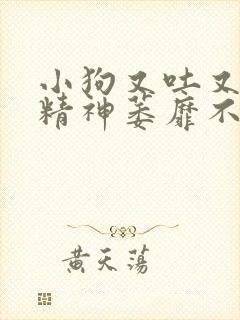 小狗又吐又
精神萎靡不
黄天荡